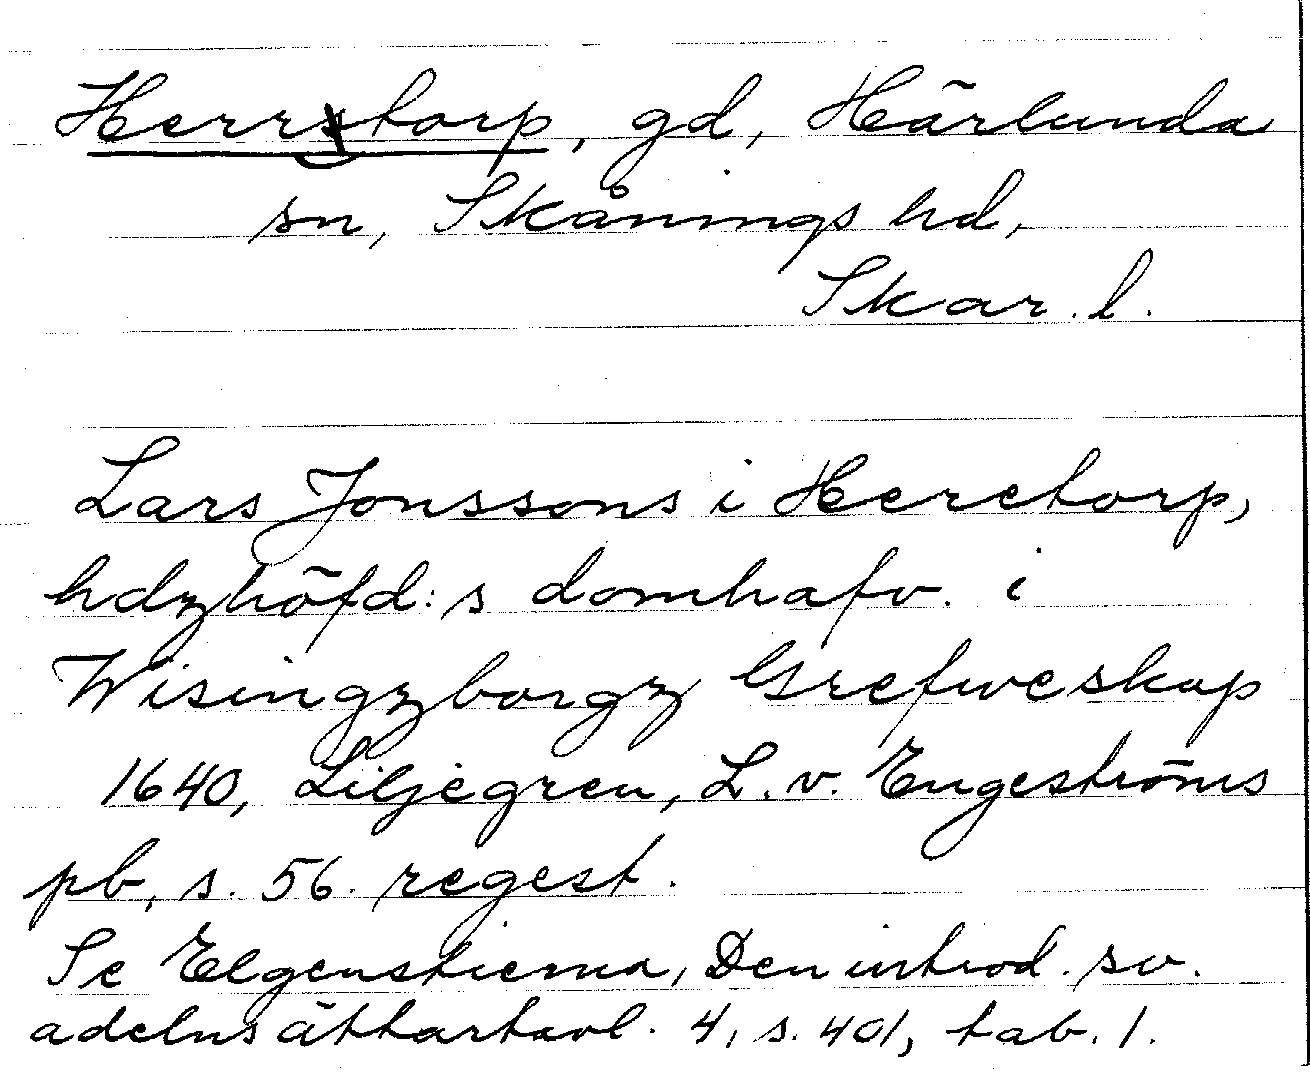 Herrtorp, gd, Härlunda
sn, Skånings hd,
Skar. l.
Lars Jonssons i Heretorp,
hdzhöfd:s domhafv. i
Wisingzborgz Grefweskap
1640, Liljegren, L. v. Engeströms
pb, s. 56. regest.
Se Elgenstierna, Den introd. sv.
adelns ättartavl. 4, s. 401, tab. 1.